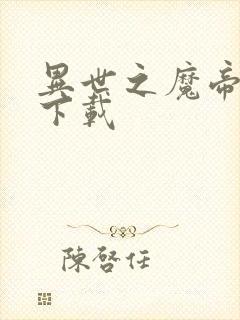 異世之魔帝
下載
陳啓任